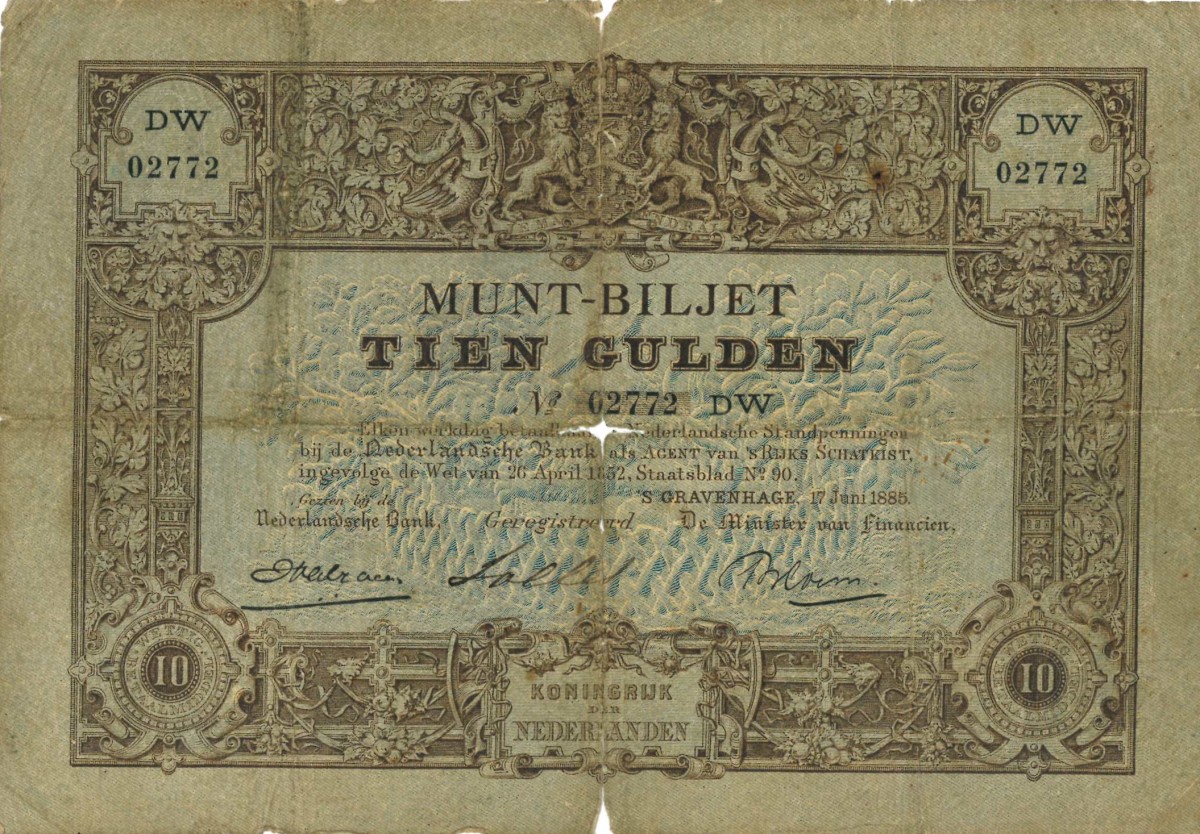 DW
02772
DW
02772
MUNT-BILJET
TIEN GULDEN
No 02772 DW
Elken werkdag betaalbaar Nederlandsche Standpenningen
bij de Nederlandsche Bank als AGENT van 'S RIJKS SCHATKIST,
ingevolge de Wet van 26 April 1852, Staatsblad No 90.
'S GRAVENHAGE, 17 Juni 1885.
Gezien bij de
Nederlandsche Bank, Geregistreerd De Minister van Financien,
10
10
KONINGRIJK
DER
NEDERLANDEN